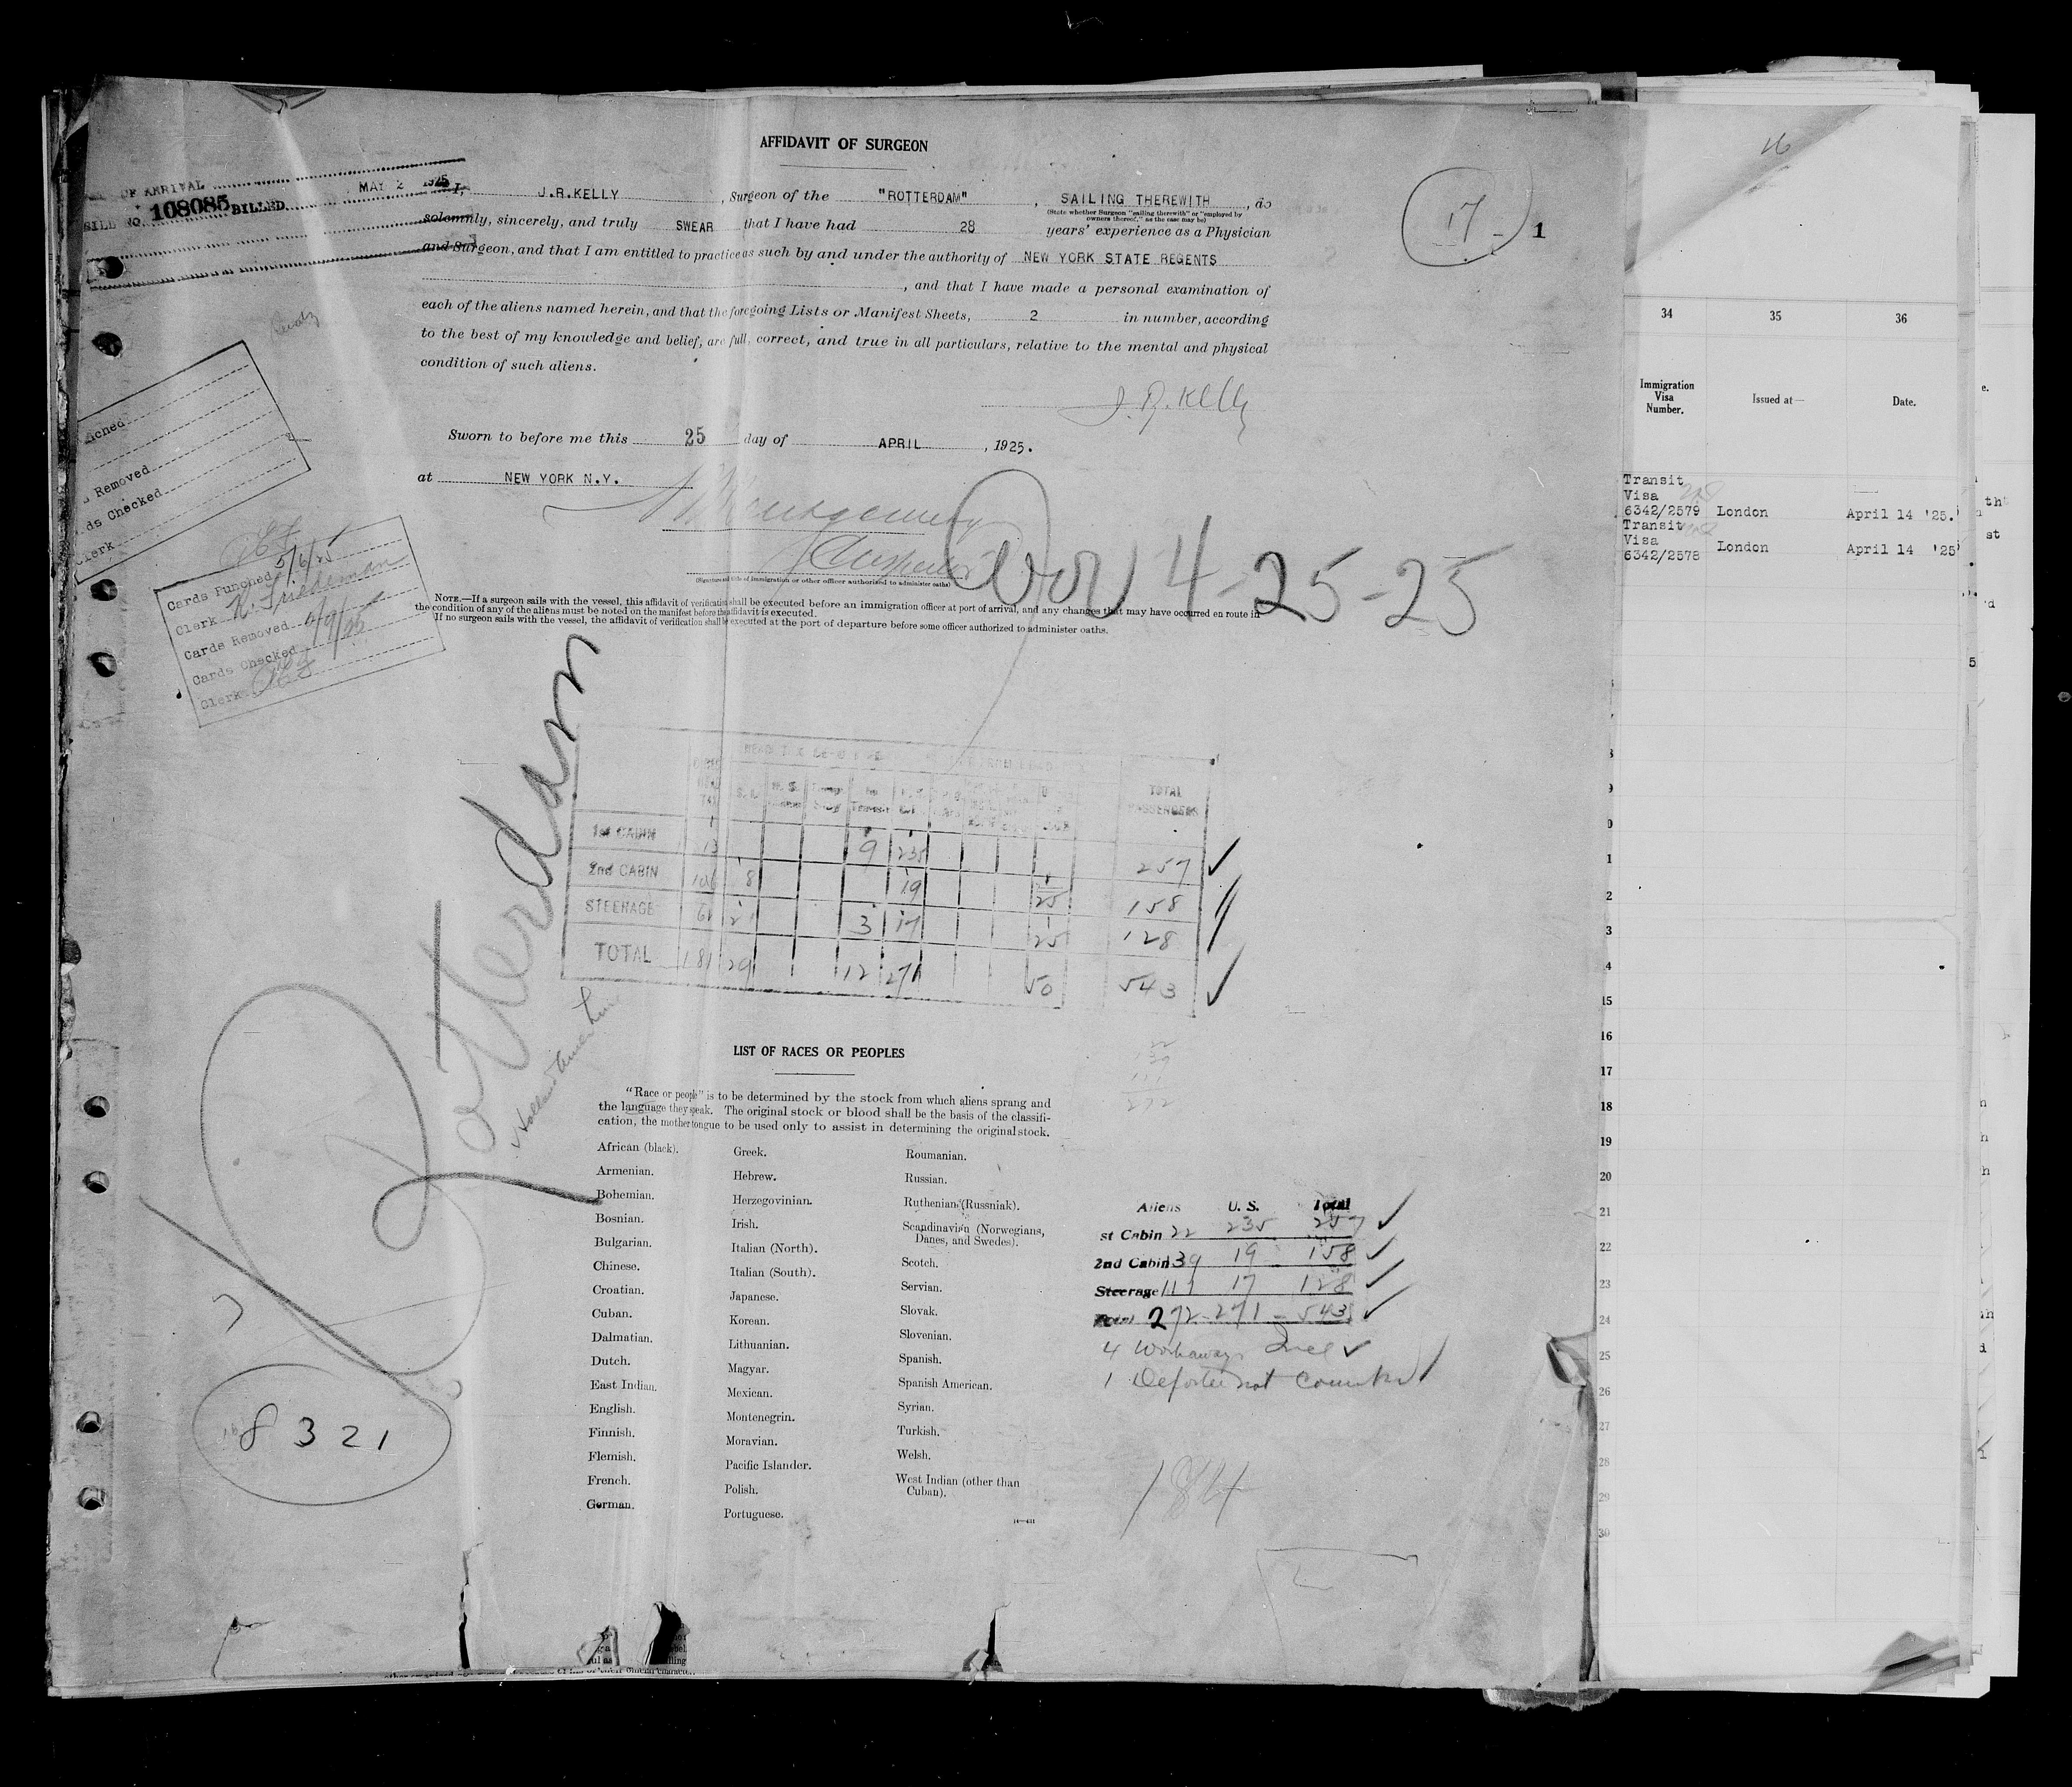 AFFIDAVIT OF SURGEON
OF ARRIVAL MAY 2 1925
BILL NO. 108085 BILLED
I, J.R.KELLY, Surgeon of the "ROTTERDAM", SAILING THEREWITH, do
(State whether Surgeon "sailing therewith" or "employed by
owners thereof," as the case may be)
solemnly, sincerely, and truly SWEAR that I have had 28 years' experience as a Physician
and Surgeon, and that I am entitled to practice as such by and under the authority of NEW YORK STATE REGENTS
, and that I have made a personal examination of
each of the aliens named herein, and that the foregoing Lists or Manifest Sheets, 2 in number, according
to the best of my knowledge and belief, are full, correct, and true in all particulars, relative to the mental and physical
condition of such aliens.
J. R. Kelly
Sworn to before me this 25 day of APRIL, 1925.
at NEW YORK N.Y.
Montgomery
Inspector
(Signature and title of immigration or other officer authorized to administer oaths)
NOTE.—If a surgeon sails with the vessel, this affidavit of verification shall be executed before an immigration officer at port of arrival, and any changes that may have occurred en route in
the condition of any of the aliens must be noted on the manifest before the affidavit is executed.
If no surgeon sails with the vessel, the affidavit of verification shall be executed at the port of departure before some officer authorized to administer oaths.
17
1
4-25-25
Removed
ds Checked
Clerk
Cards Punched 5/6/25
Clerk H. Friedeman
Cards Removed
Cards Checked
Clerk
Rotterdam
Holland Amer Line
TOTAL
PASSENGERS
1st CABIN 13 9 235 257
2nd CABIN 106 8 19 25 158
STEERAGE 61 21 3 17 25 128
TOTAL 181 29 12 271 50 543
LIST OF RACES OR PEOPLES
"Race or people" is to be determined by the stock from which aliens sprang and
the language they speak. The original stock or blood shall be the basis of the classifi-
cation, the mother tongue to be used only to assist in determining the original stock.
African (black).
Armenian.
Bohemian.
Bosnian.
Bulgarian.
Chinese.
Croatian.
Cuban.
Dalmatian.
Dutch.
East Indian.
English.
Finnish.
Flemish.
French.
German.
Greek.
Hebrew.
Herzegovinian.
Irish.
Italian (North).
Italian (South).
Japanese.
Korean.
Lithuanian.
Magyar.
Mexican.
Montenegrin.
Moravian.
Pacific Islander.
Polish.
Portuguese.
Roumanian.
Russian.
Ruthenian (Russniak).
Scandinavian (Norwegians,
Danes, and Swedes).
Scotch.
Servian.
Slovak.
Slovenian.
Spanish.
Spanish American.
Syrian.
Turkish.
Welsh.
West Indian (other than
Cuban).
Aliens U. S. Total
st Cabin 22 235 257
2nd Cabin 139 19 158
Steerage 111 17 128
Total 272 - 271 - 543
4 Workaways Incl
1 Deportee not counted
184
8321
16
34 35 36
Immigration
Visa
Number.
Issued at—
Date.
Transit
Visa
6342/2579 London April 14 '25.
Transit
Visa
6342/2578 London April 14 '25
15
16
17
18
19
20
21
22
23
24
25
26
27
28
29
30